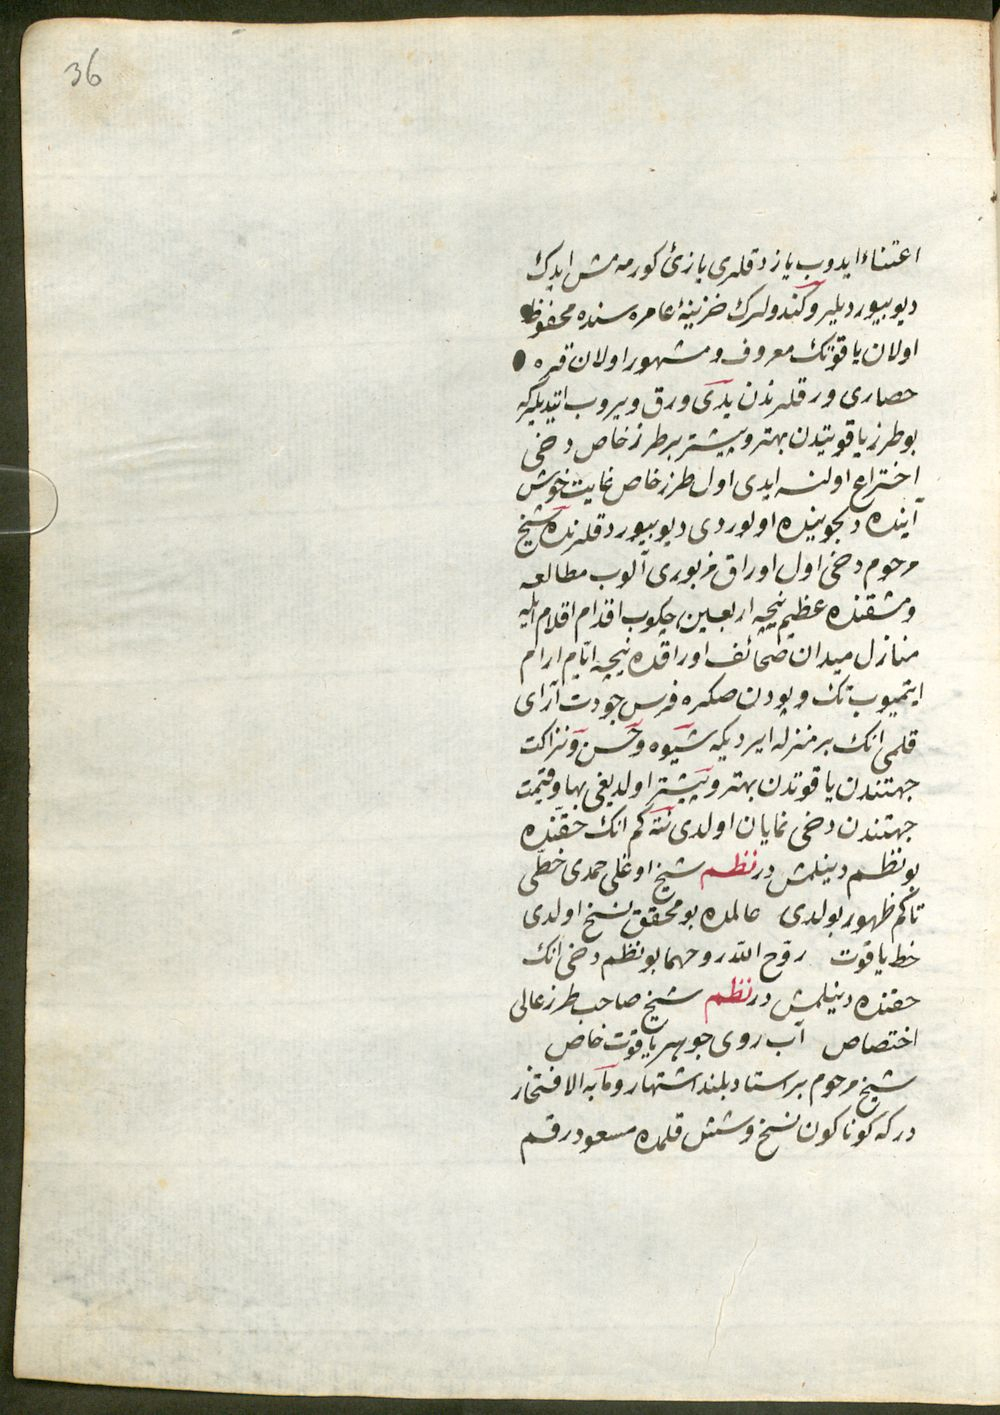 36
اعتناء ایدوب یازدقلری یازیٔ کورمه مش ایدك
دیو بیوردیلر و کندولرك خزینهٔ عامره سنده محفوظ
اولان یاقوتك معروف و مشهور اولان قره
حصاری ورقلرندن یدی ورق ویروب ایتدیلرکه
بو طرز یاقوتیدن بهتر و پیشتر بر طرز خاص دخی
اختراع اولنسه ایدی اول طرز خاص غایت خوش
آینده دلجوینده اولوردی دیو بیوردقلرنده شیخ
مرحوم دخی اول اوراق مزبوری آلوب مطالعه
و مشقنده عظیم نیچه اربعین چکوب اقدام اقلام ایله
منازل میدان صحائف اوراقده نیچه ایام ارام
ایتمیوب تك و پودن صکره فرس جودت آرای
قلمی انك بر منزله ایردیکه شیوه و حسن و نزاکت
جهتندن یاقوتدن بهتر و پیشتر اولدیغی بها و قیمت
جهتندن دخی نمایان اولدی نته کم انك حقنده
بو نظم دینلمش در نظم شیخ اوغلی حمدی خطی
تا کم ظهور بولدی عالمده بو محقق نسخ اولدی
خط یاقوت روح الله روحهما بو نظم دخی انك
حقنده دینلمش در نظم شیخ صاحب طرز عالی
اختصاص آب روی جوهر یاقوت خاص
شیخ مرحوم بر استاد بلند اشتهار و مابه الافتخار
درکه کوناکون نسخ و شش قلمده مسعود رقم